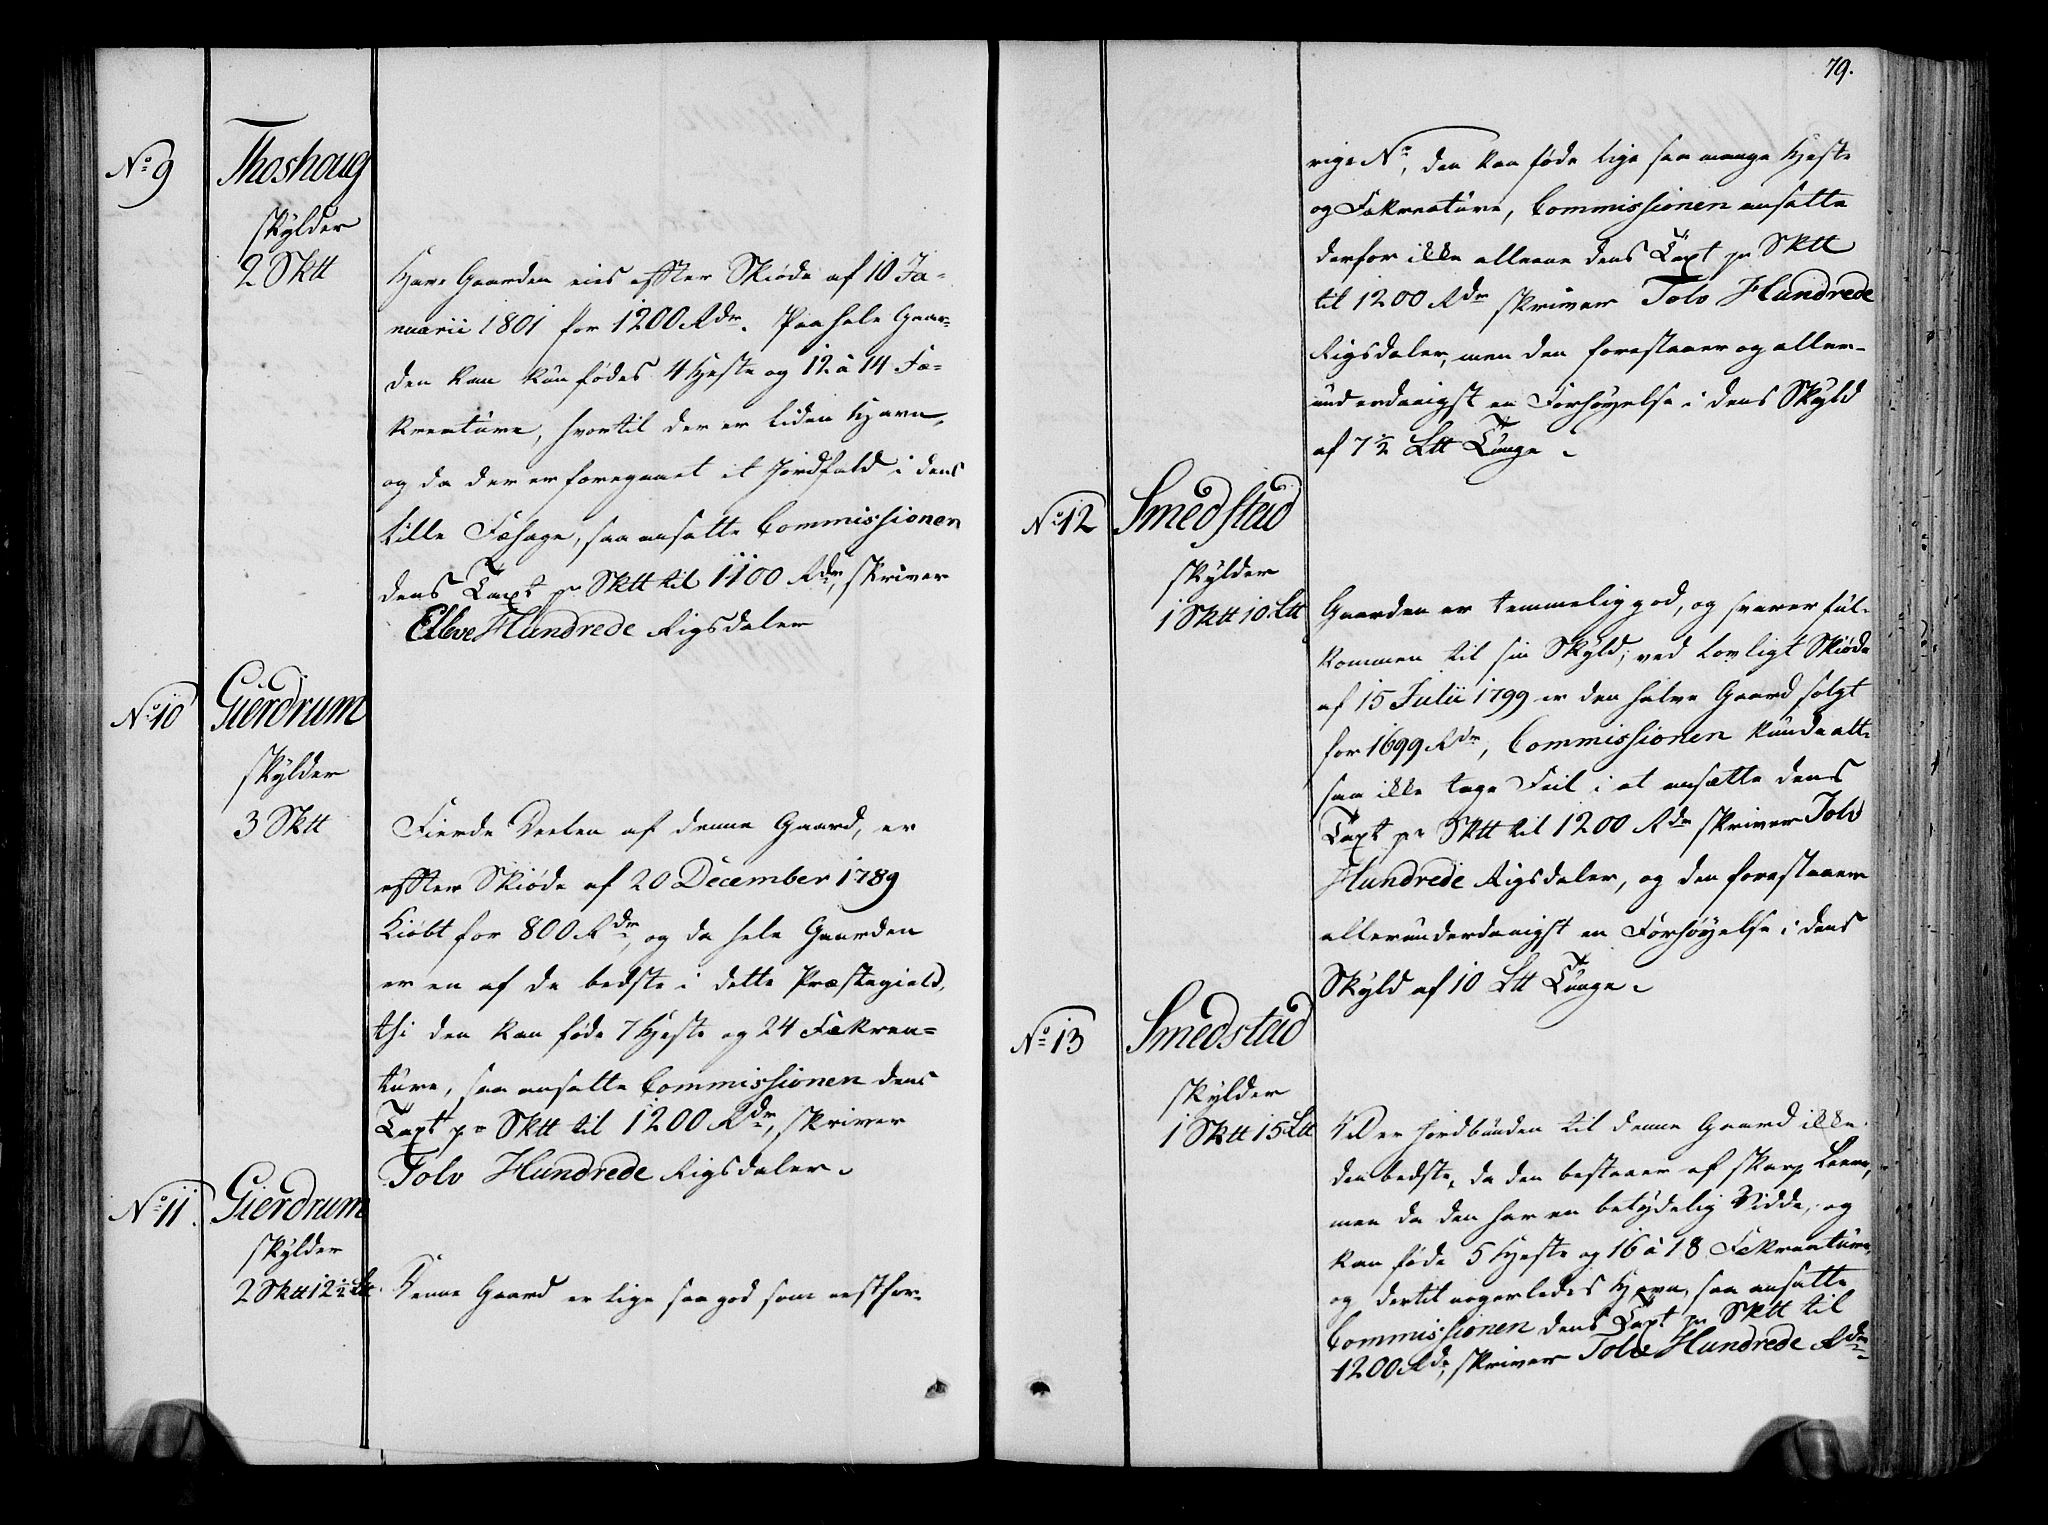 No 9
Thoshoug
skylder
2 Sktt
Halve Gaarden eies effter Skiøde af 10 Ja-
nuarii 1801 for 1200 Rdr. Paa hele Gaar-
den kan kun fødes 4 Heste og 12 à 14 Fæ-
kreature, hvortil der er liden Havn,
og da der er foregaaet et Jordfald i dens
lille Fæhage, saa ansatte Commissionen
dens Taxt pr Sktt til 1100 Rdr, skriver
Elleve Hundrede Rigsdaler
No 10
Gierdrum
skylder
3 Sktt
Fierde Deelen af denne Gaard, er
effter Skiøde af 20 December 1789
kiøbt for 800 Rdr, og da hele Gaarden
er en af de bedste i dette Præstegield,
thi den kan føde 7 Heste og 24 Fækrea-
ture, saa ansatte Commissionen dens
Taxt pr Sktt til 1200 Rdr, skriver
Tolv Hundrede Rigsdaler
No 11
Gierdrum
skylder
2 Sktt 12½ Ltt
Denne Gaard er lige saa god som nestfor-
79.
rige No, den kan føde lige saa mange Heste
og Fækreature, Commissionen ansatte
derfor ikke alleene dens Taxt pr Sktt
til 1200 Rdr skriver Tolv Hundrede
Rigsdaler, men den forestaaer og aller-
underdanigst en Forhøyelse i dens Skyld
af 7½ Ltt Tunge
No 12
Smedstad
skylder
1 Sktt 10 Ltt
Gaarden er temmelig god, og svarer ful-
kommen til sin Skyld; ved lovligt Skiøde
af 15 Julii 1799 er den halve Gaard solgt
for 1699 Rdr, Commissionen kunde alt-
saa ikke tage Feil i at ansætte dens
Taxt pr Sktt til 1200 Rdr skriver Tolv
Hundrede Rigsdaler, og den forestaaer
allerunderdanigst en Forhøyelse i dens
Skyld af 10 Ltt Tunge
No 13
Smedstad
skylder
1 Sktt 15 Ltt
Vel er Jordbunden til denne Gaard ikke
den bedste, da den bestaaer af skarp Leere,
men da den har en betydelig Vidde, og
kan føde 5 Heste og 16 à 18 Fækreature,
og dertil nogenledes Havn, saa ansatte
Commissionen dens Taxt pr Sktt til
1200 Rdr, skriver Tolv Hundrede Rdr